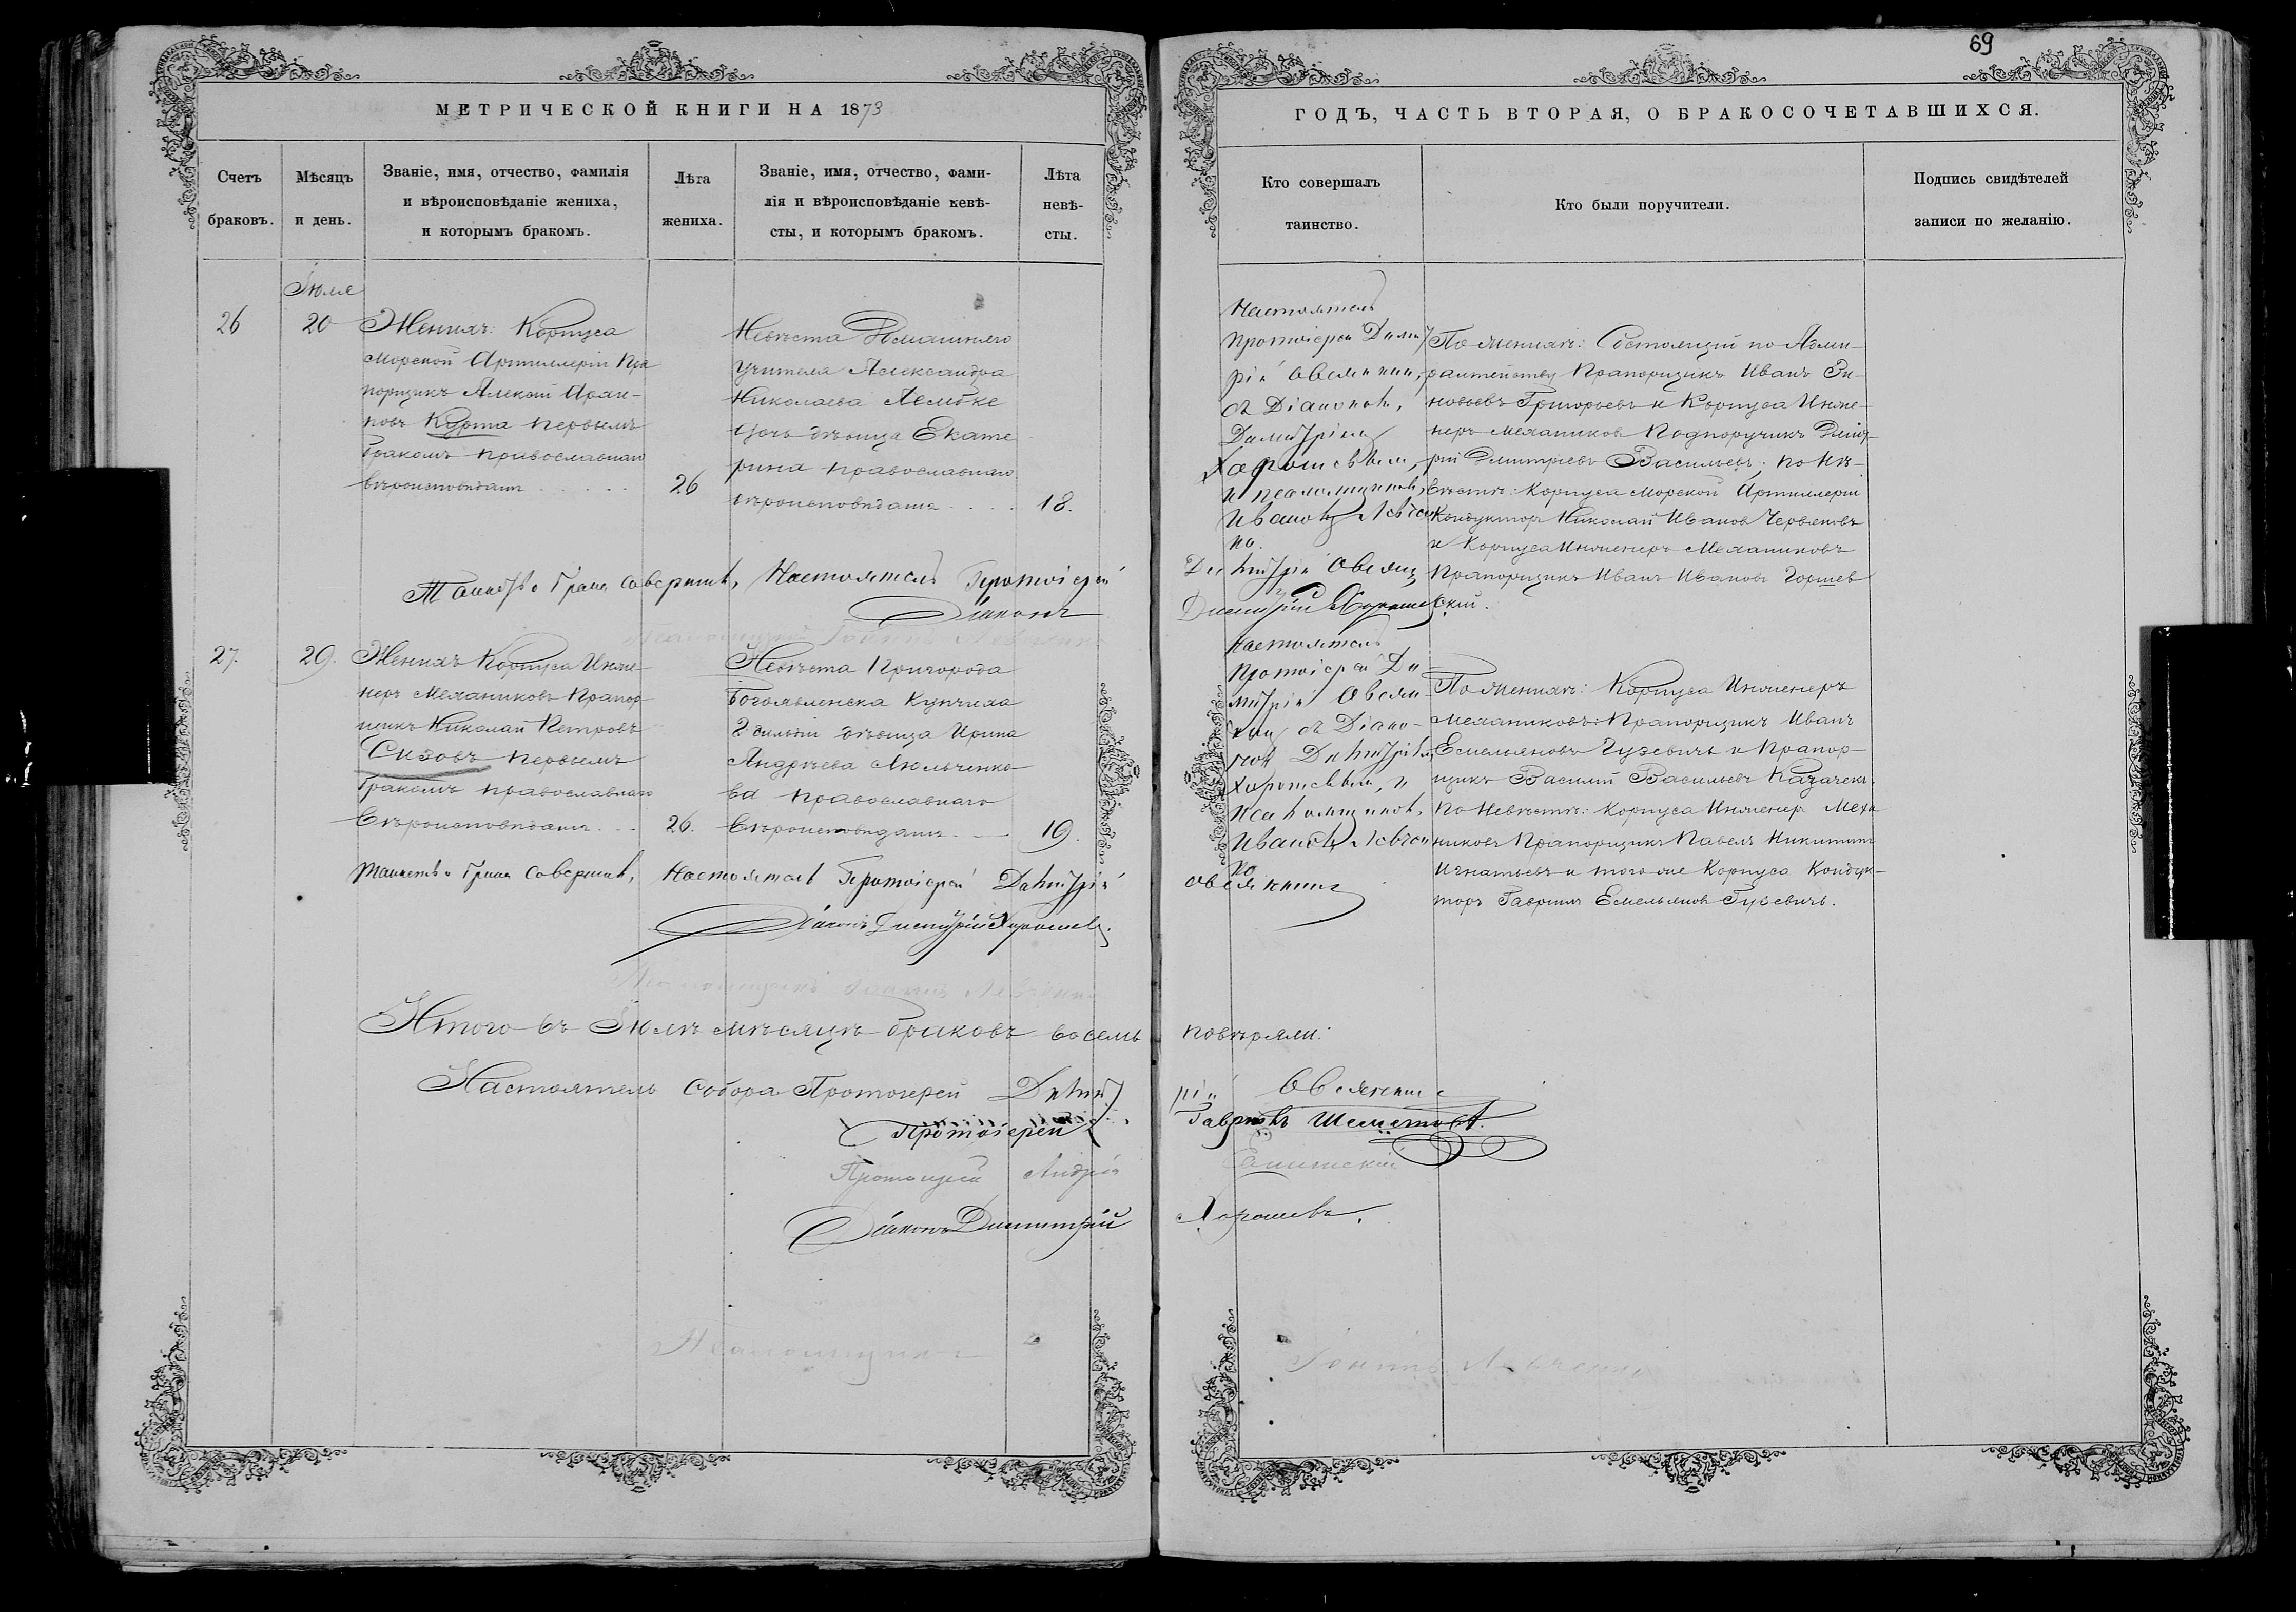 69
МЕТРИЧЕСКОЙ КНИГИ НА 1873
ГОДЪ, ЧАСТЬ ВТОРАЯ, О БРАКОСОЧЕТАВШИХСЯ.
Счетъ браковъ.
Мѣсяцъ и день.
Званіе, имя, отчество, фамилія
и вѣроисповѣданіе жениха,
и которымъ бракомъ.
Лѣта
жениха.
Званіе, имя, отчество, фами-
лія и вѣроисповѣданіе невѣ-
сты, и которымъ бракомъ.
Лѣта
невѣ-
сты.
Кто совершалъ
таинство.
Кто были поручители.
Подпись свидѣтелей
записи по желанію.
Іюля
26
20
Женихъ: Корпуса
Морской Артиллеріи Пра
порщикъ Алексѣй
Курта первымъ
бракомъ православнаго
вѣроисповѣданія
26
Невѣста Домашняго
учителя Александра
Николаева Лемтке
дочь дѣвица Екате
рина православнаго
вѣроисповѣданія
18.
Настоятель
Протоіерей Дими
трій Овсянкин,
съ Діакономъ,
Димитріемъ
Хорошевымъ,
и псаломщикомъ,
Иваномъ Левчен
ко.
По женихѣ: Состоящій по Адми-
ралтейству Прапорщикъ Иванъ Зи-
новьевъ Григорьевъ и Корпуса Инже-
неръ Механиковъ Подпоручикъ Дмит-
рій Дмитріевъ Васильевъ; по Нѣ-
вѣстѣ: Корпуса Морской Артиллеріи
Кондукторъ Николай Ивановъ Червяковъ
и Корпуса Инженеръ Механиковъ
Прапорщикъ Иванъ Ивановъ
Таинство брака совершилъ, Настоятель Протоіерей Димитрій Овсянк
Діаконъ Димитрій
Псаломщикъ Іоаннъ Левченко
27.
29.
Женихъ Корпуса Инже-
неръ Механиковъ Прапор-
щикъ Николай Петровъ
Сизовъ первымъ
бракомъ православнаго
вѣроисповѣданія
26.
Невѣста Пригорода
Богоявленска Купчиха
2 гильдіи дѣвица Ирина
Андреева Люльченко-
ва православнаго
вѣроисповѣданія
19.
Настоятель
Протоіерей Ди
митрій Овсян
кинъ съ Діако-
номъ Димитріемъ
Хорошевымъ, и
Псаломщикомъ,
Иваномъ Левчен
ко
По женихѣ: Корпуса Инженеръ
Механиковъ: Прапорщикъ Иванъ
Емельяновъ Гузевичъ и Прапор-
щикъ Василій Васильевъ Казачекъ.
По Невѣстѣ: Корпуса Инженеръ Меха
никовъ Прапорщикъ Павелъ Никитинъ
Игнатьевъ и того же Корпуса Кондук-
торъ Гавріилъ Емельяновъ Гузевичъ.
Таинство брака совершилъ, Настоятель Протоіерей Димитрій Овсянкинъ
Діаконъ Димитрій Хорошевъ.
Псаломщикъ Іоаннъ Левченко
Итого въ Іюлѣ мѣсяцѣ браковъ восемь повѣряли:
Настоятель Собора Протоіерей Димитрій Овсянкинъ
Протоіерей Гавріилъ
Протоіерей Андрей
Діаконъ Димитрій Хорошевъ.
Псаломщикъ Іоаннъ Левченко